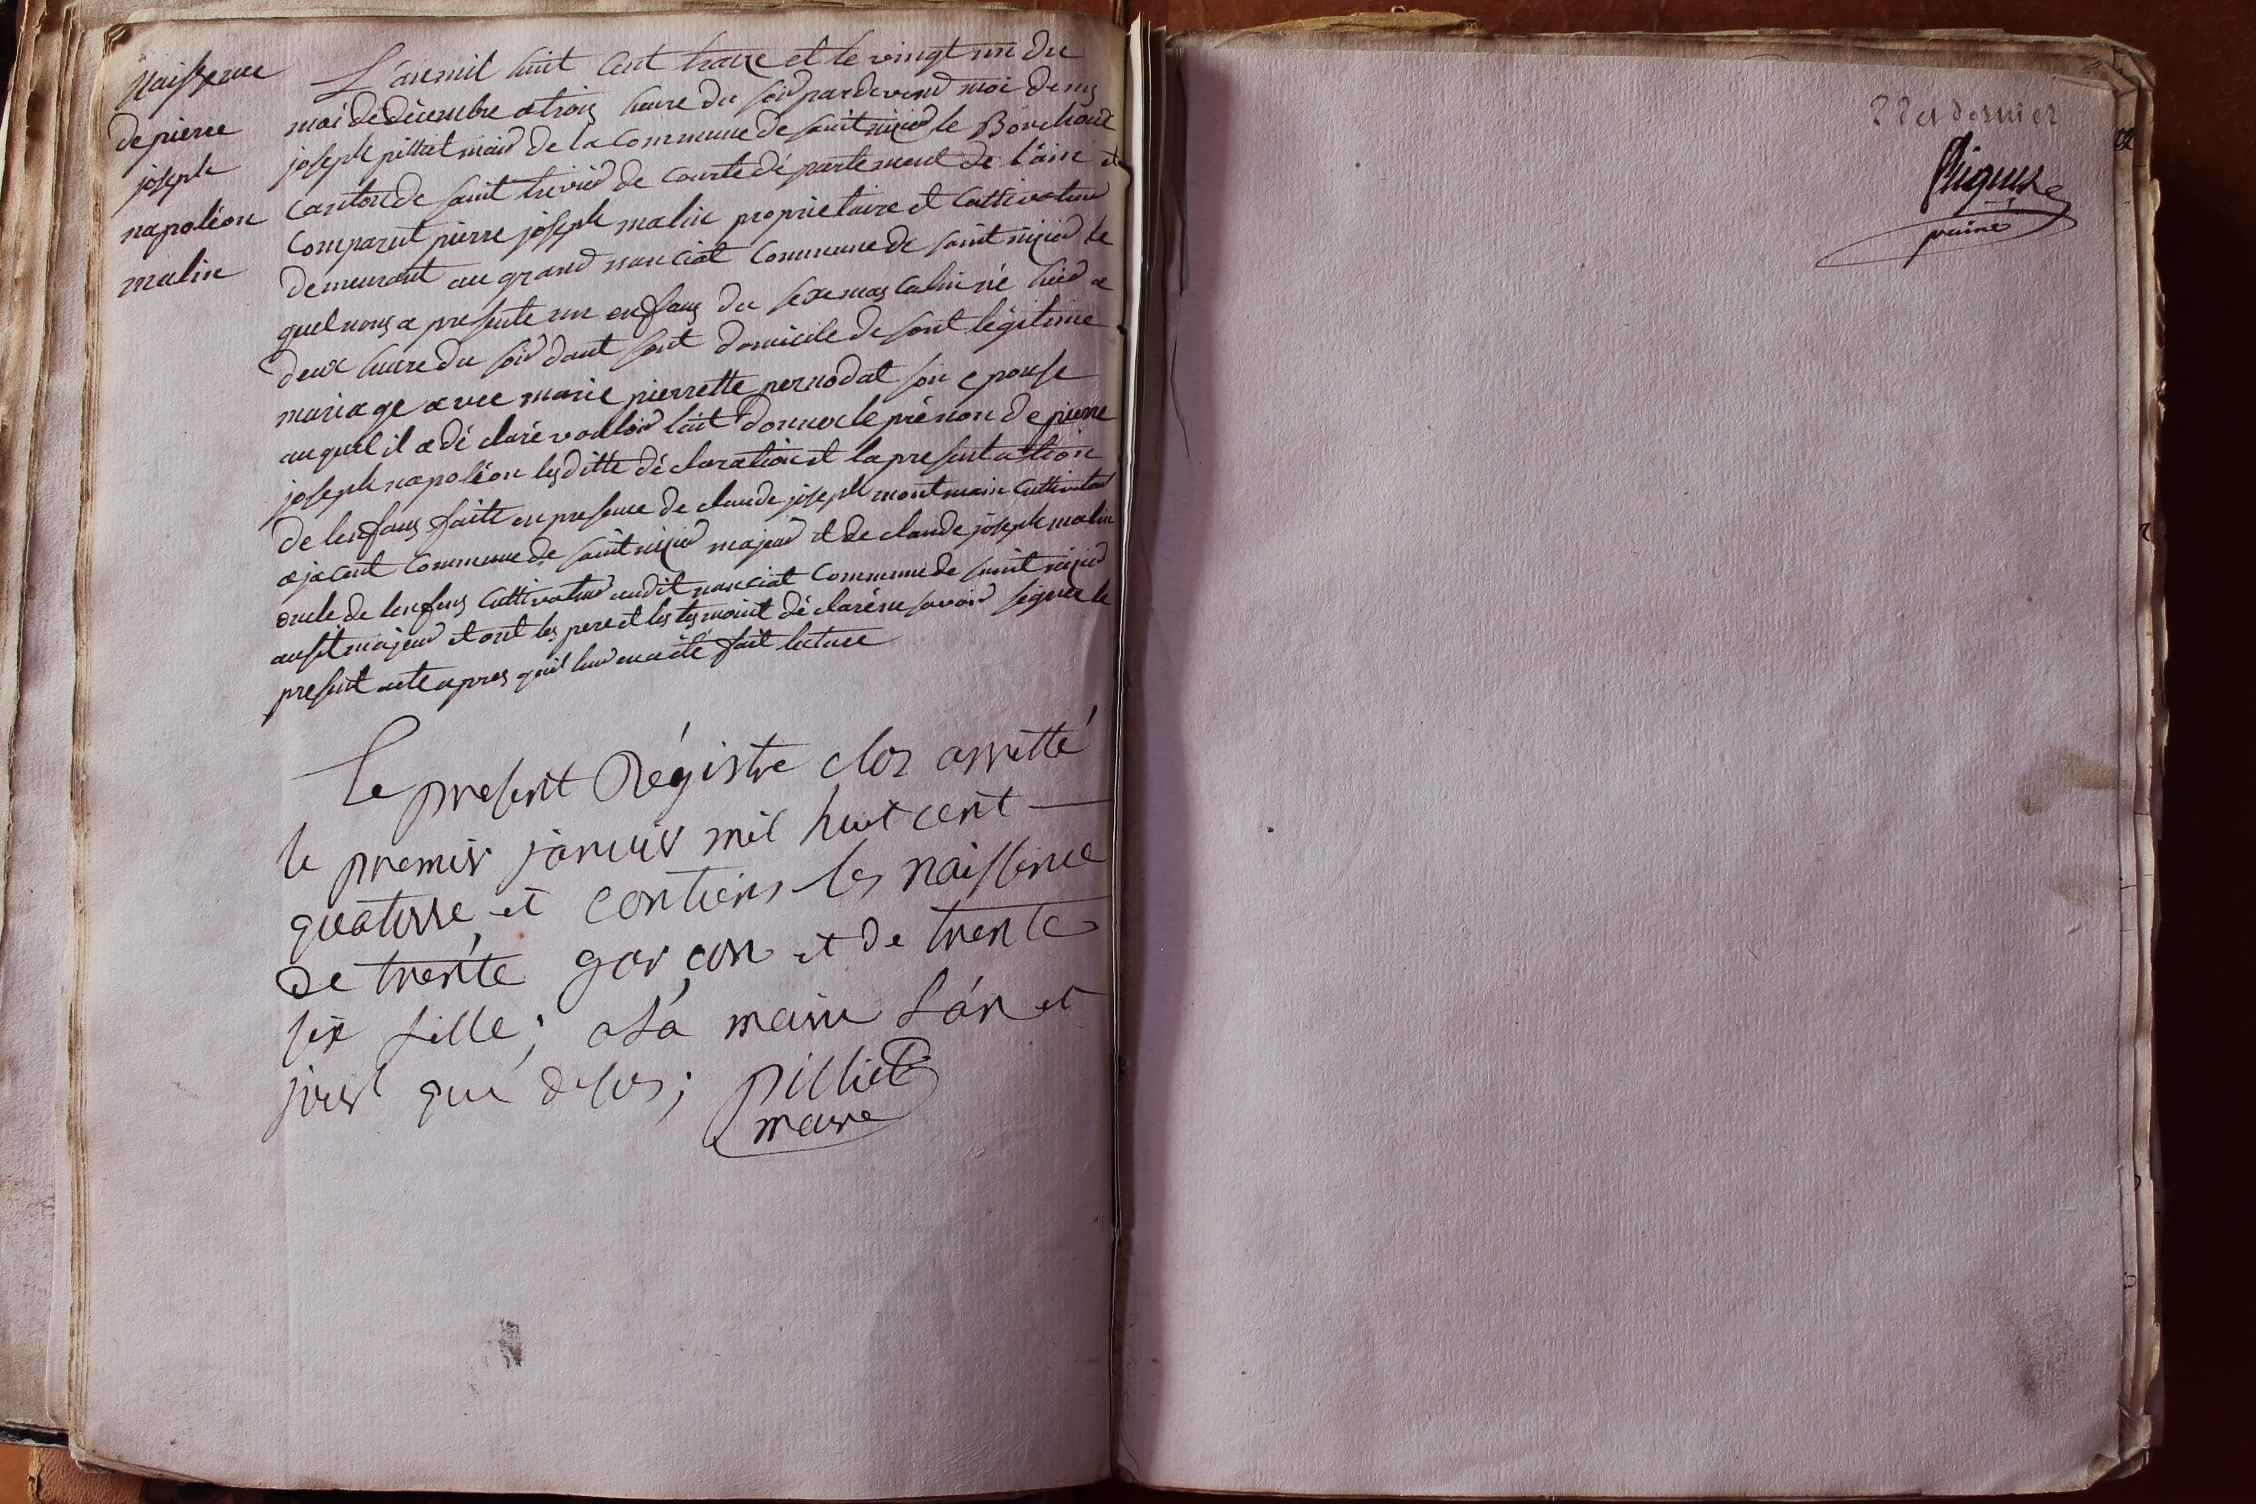 Naissence
de pierre
joseph
napoléon
malin
L'an mil huit cent traize et le vingt un du
moi de décembre a trois heure du soir par devend moi denis
joseph pilliet maire de la commune de saint nizier le Bouchoux
canton de saint trivier de courte département de l'ain et
comparut pierre joseph malin proprietaire et cultivateur
demeurant au grand nanciat commune de saint nizier le
quel nous a presente un enfans du sexe mascalin né hier a
deux heure du soir dant sont domicile de sont légitime
mariage avec marie pierrette pernodat son epouse
auquel il a dé claré vouloir lui donner le prénon de pierre
joseph napoléon lesditte dé claration et la presentation
de lenfans faitte en presence de claude joseph montmain cultivateur
a jacent commune de saint nizier majeur et de claude joseph malin
oncle de lenfans cultivateur audit nanciat commune de saint nizier
aussit majeur et ont les pere et les tesmoint dé claré ne savoir signer le
present acte apres quil leur en a été fait lecture
Le present Régistre clos arretté
le premier janvier mil huit cent
quatorse et contiens les naissence
de trente garçon et de trente
six fille; a la mairie l'an et
jour que desus;
pilliet
maire
der dernier